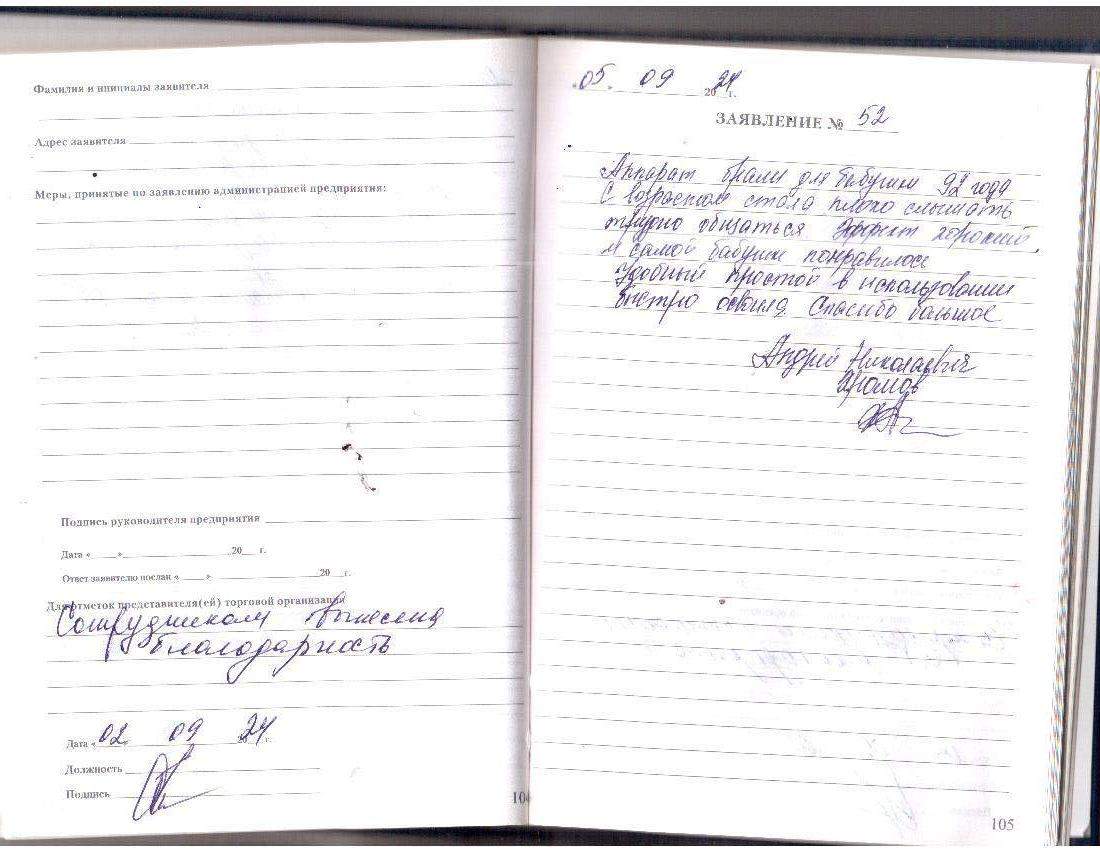 Фамилия и инициалы заявителя
Адрес заявителя
Меры, принятые по заявлению администрацией предприятия:
Подпись руководителя предприятия
Дата « » 20 г.
Ответ заявителю послан « » 20 г.
Для отметок представителя(ей) торговой организации
Сотрудникам вынесена
благодарность
Дата «02 09 24 г.
Должность
Подпись
104
«05» 09 2024 г.
ЗАЯВЛЕНИЕ № 52
Аппарат брали для бабушки 92 года
С возрастом стала плохо слышать
трудно общаться Эффект хороший,
и самой бабушке понравилось
Удобный простой в использовании
быстро освоила. Спасибо большое
Андрей Николаевич
105